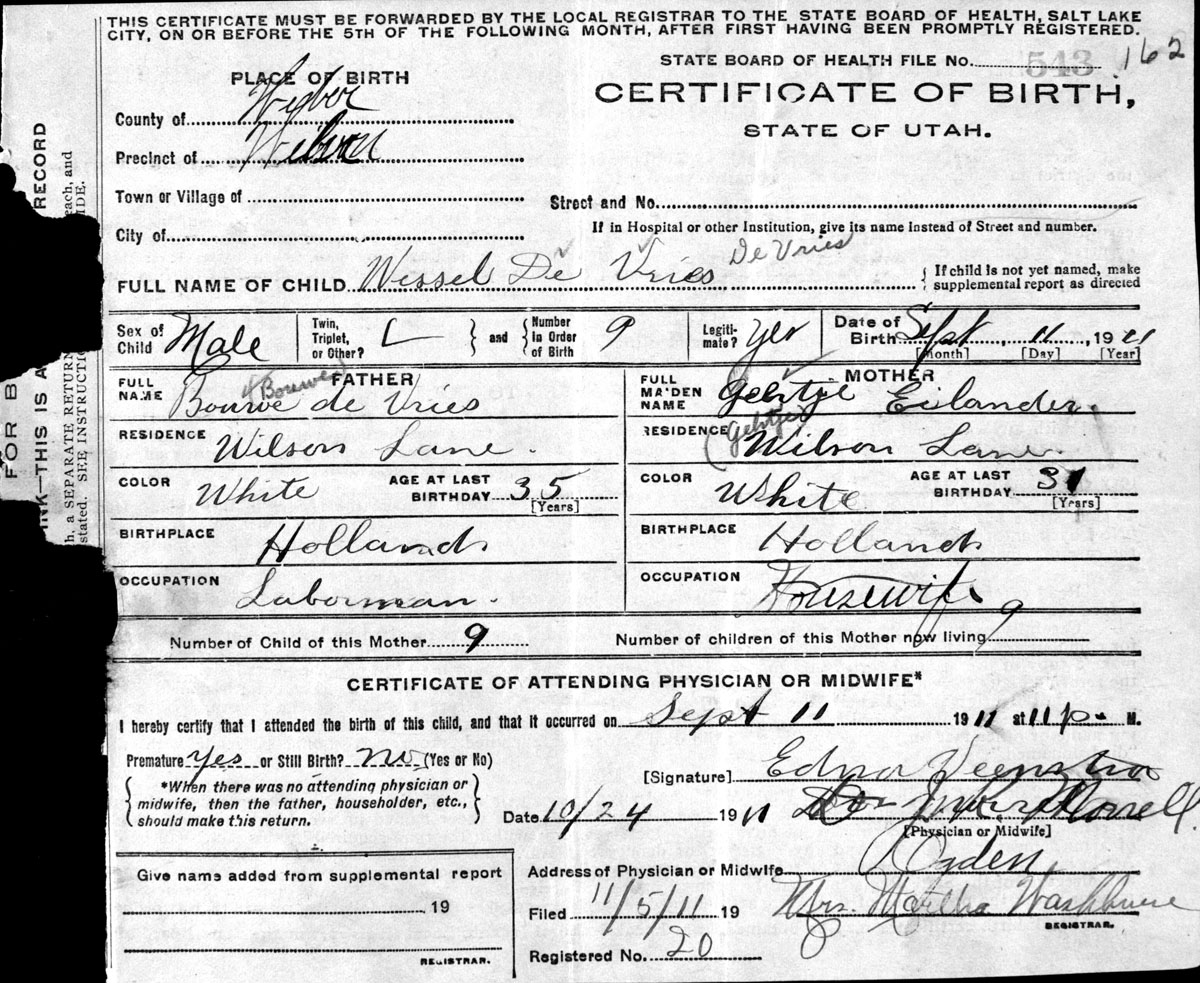 THIS CERTIFICATE MUST BE FORWARDED BY THE LOCAL REGISTRAR TO THE STATE BOARD OF HEALTH, SALT LAKE
CITY, ON OR BEFORE THE 5TH OF THE FOLLOWING MONTH, AFTER FIRST HAVING BEEN PROMPTLY REGISTERED.
STATE BOARD OF HEALTH FILE No. 543 162
PLACE OF BIRTH
CERTIFICATE OF BIRTH,
STATE OF UTAH.
County of Weber
Precinct of Wilson
Town or Village of
Street and No.
City of
If in Hospital or other Institution, give its name instead of Street and number.
De Vries
FULL NAME OF CHILD Wessel De Vries
If child is not yet named, make
supplemental report as directed
Sex of Child Male
Twin, Triplet, or Other?
and
Number In Order of Birth 9
Legiti- mate? yes
Date of Birth Sept 11, 1911
[Month] [Day] [Year]
FATHER
FULL NAME Bouwe de Vries
(Bouwe)
MOTHER
FULL MAIDEN NAME Gehrtje Eilander
(Gehtje)
RESIDENCE Wilson Lane.
RESIDENCE Wilson Lane.
COLOR White AGE AT LAST BIRTHDAY 35 [Years]
COLOR White AGE AT LAST BIRTHDAY 31 [Years]
BIRTHPLACE Holland
BIRTHPLACE Holland
OCCUPATION Laborman.
OCCUPATION Housewife
Number of Child of this Mother 9 Number of children of this Mother now living 9
CERTIFICATE OF ATTENDING PHYSICIAN OR MIDWIFE*
I hereby certify that I attended the birth of this child, and that it occurred on Sept 11 1911 at 11 p. M.
Premature yes or Still Birth? No (Yes or No)
*When there was no attending physician or
midwife, then the father, householder, etc.,
should make this return.
[Signature] Edna Veenstra
Date 10/24 1911 Morrell
[Physician or Midwife]
Give name added from supplemental report
19
REGISTRAR.
Address of Physician or Midwife Ogden
Filed 11/5/11 19 Mrs. Martha Washburn
REGISTRAR.
Registered No. 20
FOR B
INK—THIS IS A
RECORD
h, a SEPARATE RETURN
each, and
stated. SEE INSTRUCTIO
IDE.